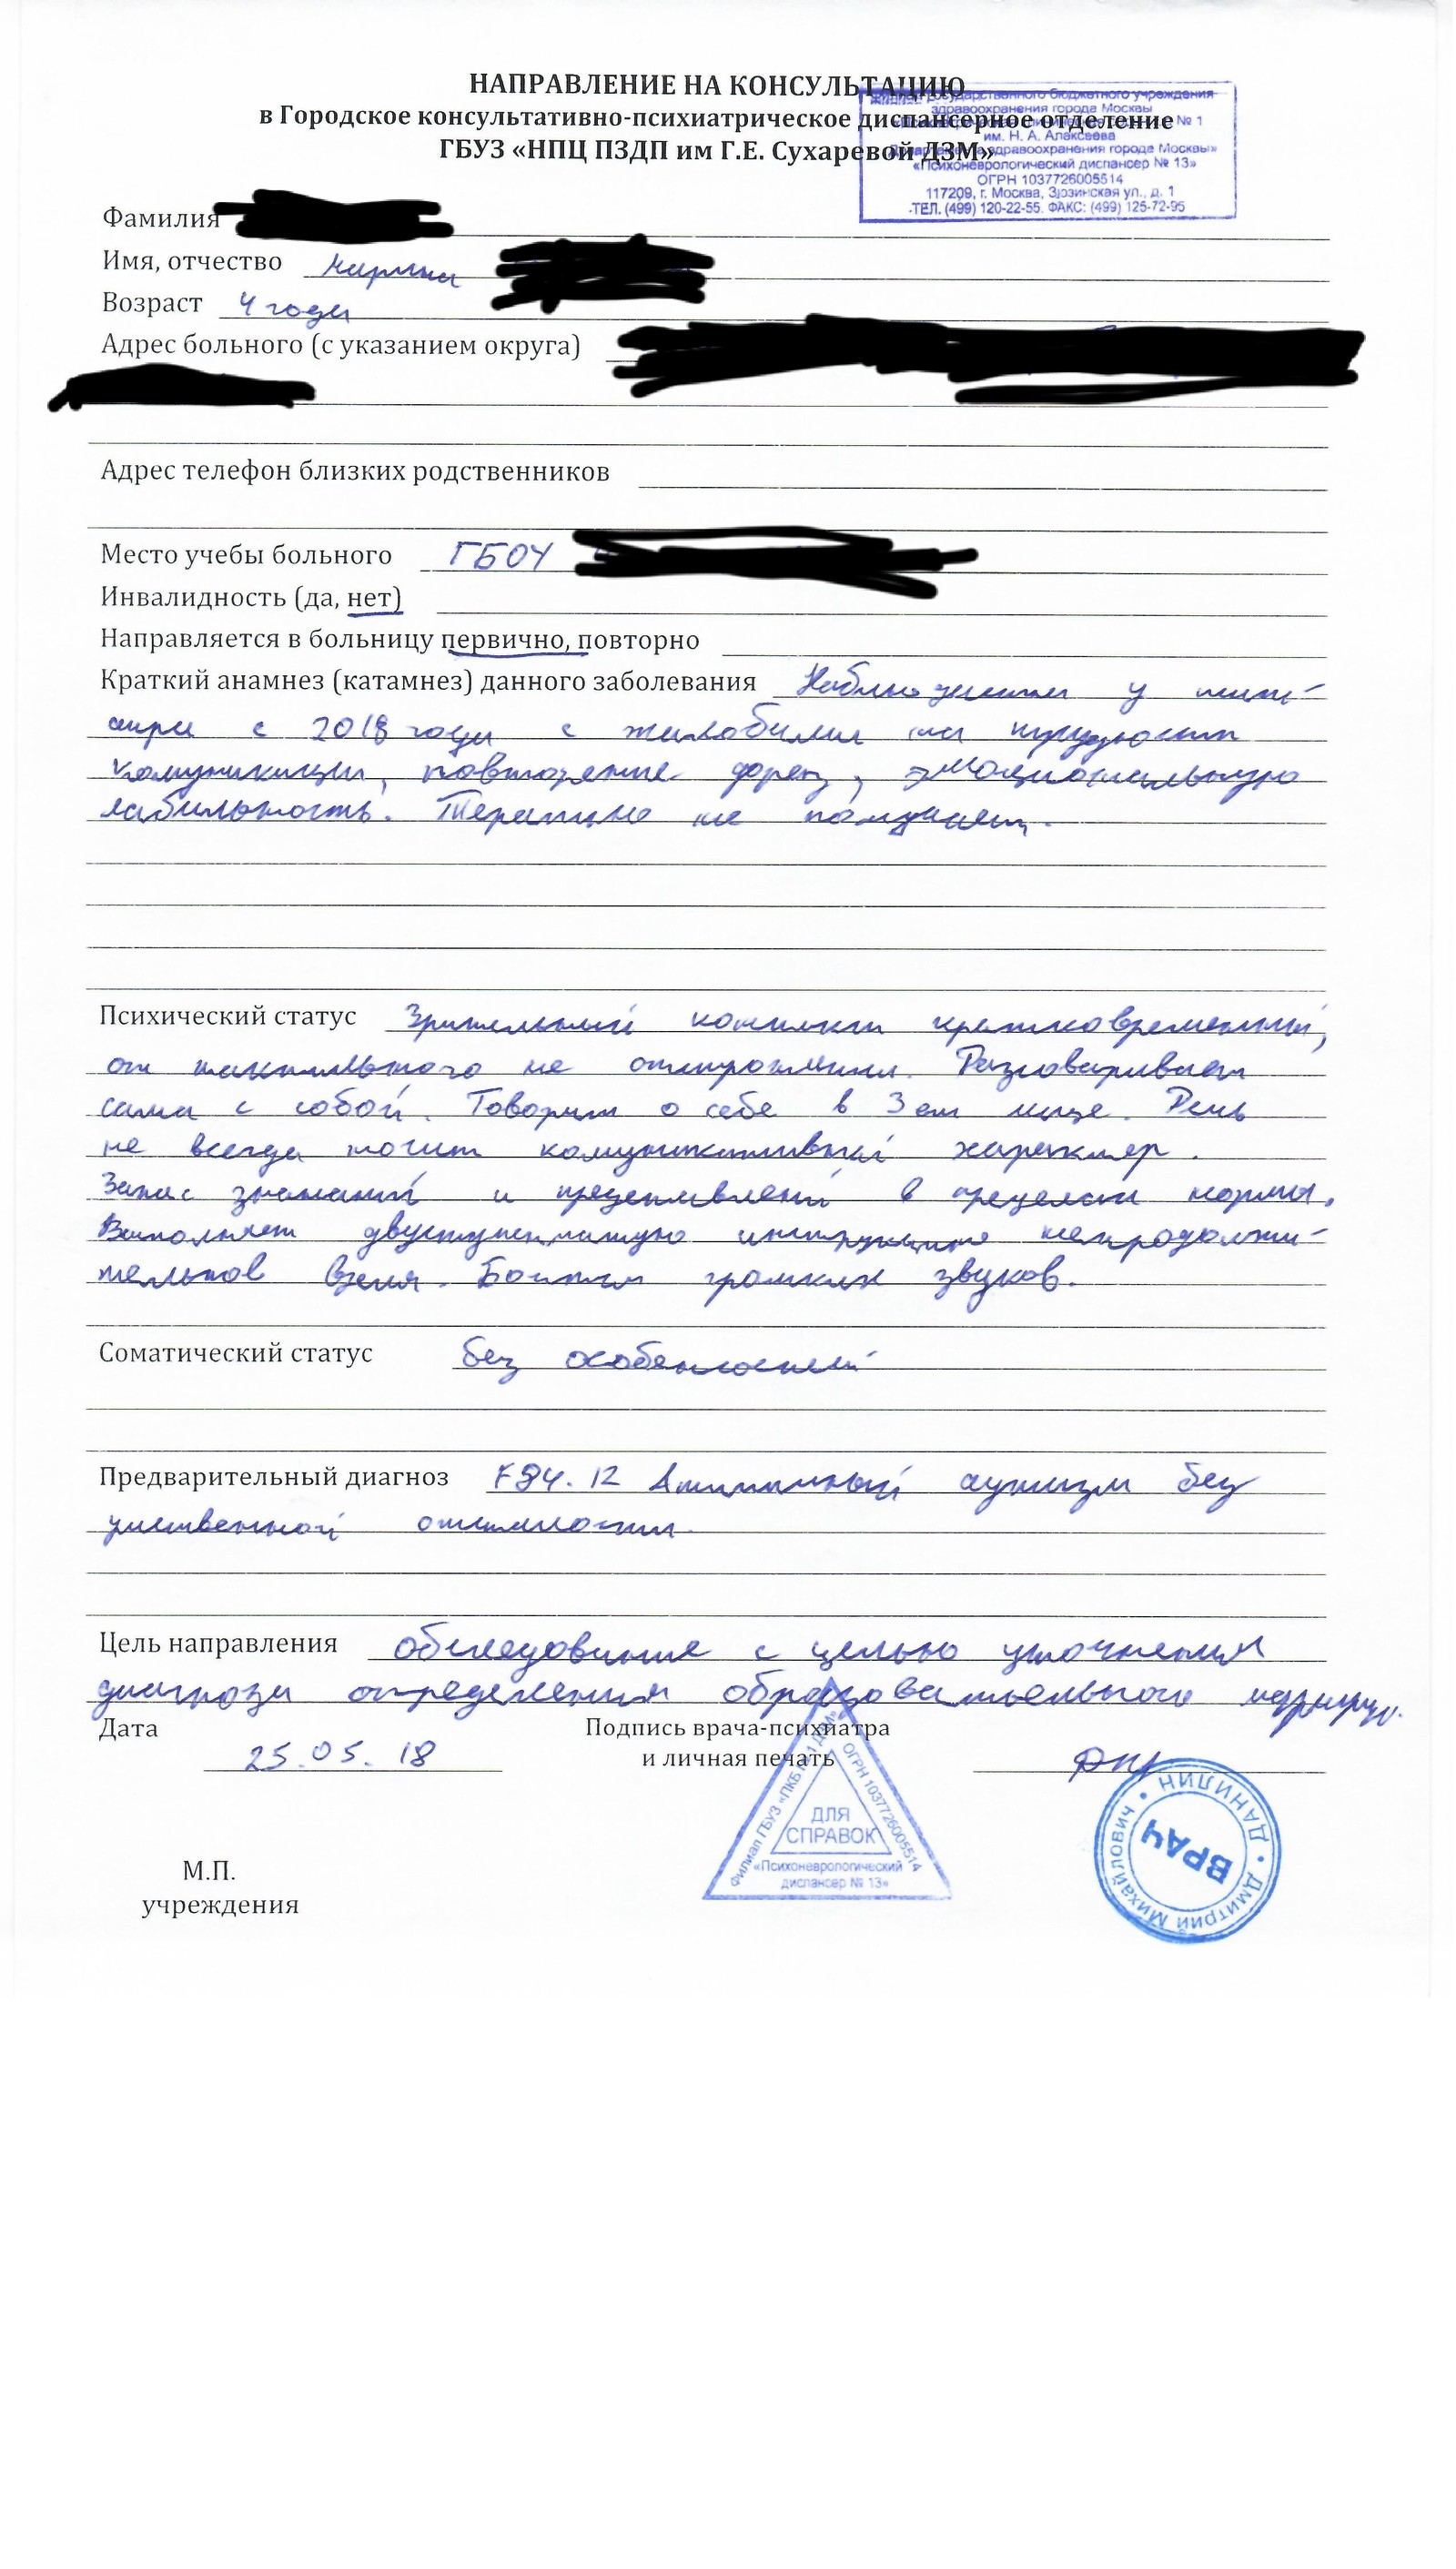 НАПРАВЛЕНИЕ НА КОНСУЛЬТАЦИЮ
в Городское консультативно-психиатрическое диспансерное отделение
ГБУЗ «НПЦ ПЗДП им Г.Е. Сухаревой ДЗМ»
Филиал Государственного бюджетного учреждения
здравоохранения города Москвы
№ 1
им. Н. А. Алексеева
Департамента здравоохранения города Москвы»
«Психоневрологический диспансер № 13»
ОГРН 1037726005514
117209, г. Москва, Зюзинская ул., д. 1
ТЕЛ. (499) 120-22-55. ФАКС: (499) 125-72-95
Фамилия
Имя, отчество Карина
Возраст 4 года
Адрес больного (с указанием округа)
Адрес телефон близких родственников
Место учебы больного ГБОУ
Инвалидность (да, нет)
Направляется в больницу первично, повторно
Краткий анамнез (катамнез) данного заболевания Наблюдается у
с 2018 года с жалобами на трудности
комуникации, повторение фраз, эмоциональную
лабильность. Терапию не получает.
Психический статус Зрительный контакт кратковременный,
от тактильного не отстранена. Разговаривает
сама с собой. Говорит о себе в 3 ем лице. Речь
не всегда носит комуникативный характер.
Запас знаний и представлений в пределах нормы.
Выполняет двуступенчатую инструкцию непродолжи-
тельное время. Боится громких звуков.
Соматический статус без особенностей
Предварительный диагноз F84.12 Атипичный аутизм без
умственной отсталости
Цель направления обследование с целью уточнения
диагноза определения образовательного маршрута.
Дата 25.05.18 Подпись врача-психиатра
и личная печать
Филиал ГБУЗ «ПКБ № 1 ДЗМ» ОГРН 1037726005514
ДЛЯ
СПРАВОК
«Психоневрологический
диспансер № 13»
ДАНИЛИН • Дмитрий Михайлович •
ВРАЧ
М.П.
учреждения